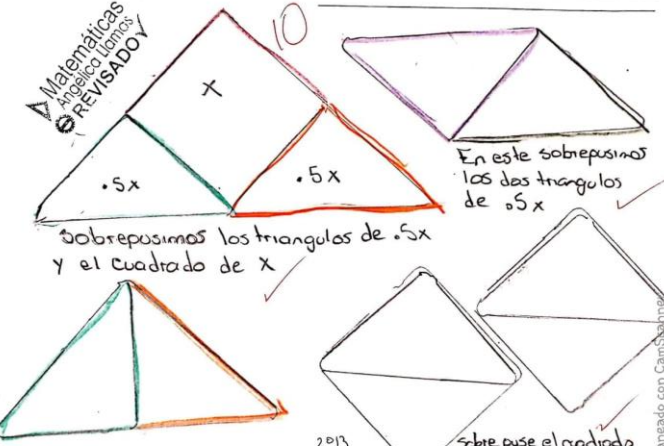 Matemáticas
Angélica Llamas
REVISADO
10
x
.5x
.5x
Sobrepusimos los triangulos de .5x
y el cuadrado de X
En este sobrepusimos
los dos triangulos
de .5x
2013
sobre puse el cuadrado